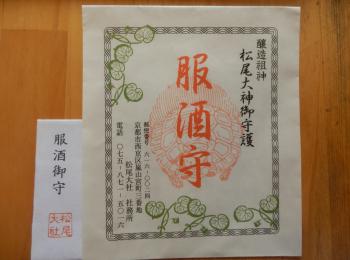 醸造祖神
松尾大神御守護
服酒守
郵便番号 六一六-〇〇二四
京都市西京区嵐山宮町三番地
松尾大社 社務所
電話 〇七五-八七一-五〇一六
服酒御守
松尾
大社